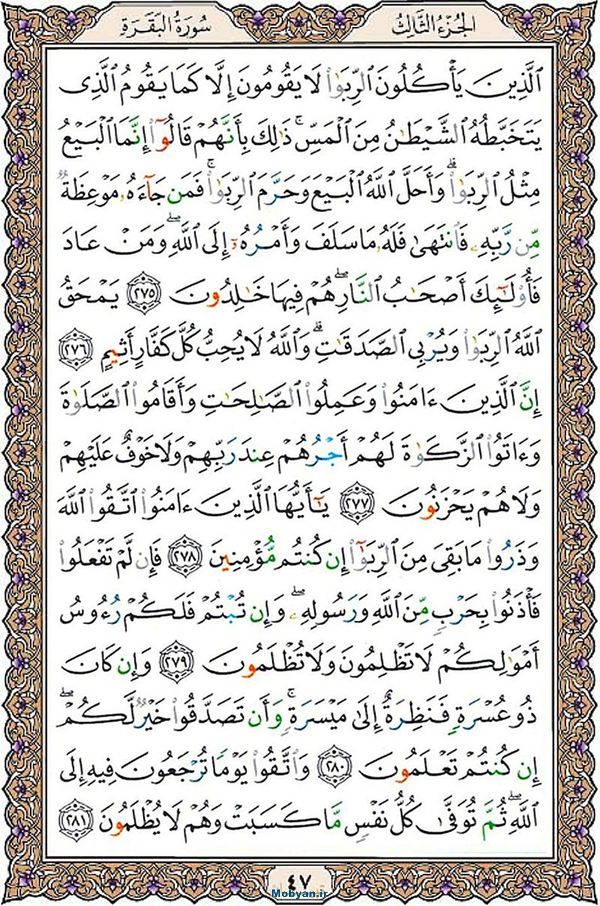 الجُزءُ الثَّالِثُ
سُورَةُ البَقَرَةِ
الَّذِينَ يَأْكُلُونَ الرِّبَوٰا۟ لَا يَقُومُونَ إِلَّا كَمَا يَقُومُ الَّذِى
يَتَخَبَّطُهُ الشَّيْطَٰنُ مِنَ الْمَسِّ ۚ ذَٰلِكَ بِأَنَّهُمْ قَالُوٓا۟ إِنَّمَا الْبَيْعُ
مِثْلُ الرِّبَوٰا۟ ۗ وَأَحَلَّ اللَّهُ الْبَيْعَ وَحَرَّمَ الرِّبَوٰا۟ ۚ فَمَن جَآءَهُۥ مَوْعِظَةٌ
مِّن رَّبِّهِۦ فَانتَهَىٰ فَلَهُۥ مَا سَلَفَ وَأَمْرُهُۥٓ إِلَى اللَّهِ ۖ وَمَنْ عَادَ
فَأُو۟لَٰٓئِكَ أَصْحَٰبُ النَّارِ ۖ هُمْ فِيهَا خَٰلِدُونَ ﴿٢٧٥﴾ يَمْحَقُ
اللَّهُ الرِّبَوٰا۟ وَيُرْبِى الصَّدَقَٰتِ ۗ وَاللَّهُ لَا يُحِبُّ كُلَّ كَفَّارٍ أَثِيمٍ ﴿٢٧٦﴾
إِنَّ الَّذِينَ ءَامَنُوا۟ وَعَمِلُوا۟ الصَّٰلِحَٰتِ وَأَقَامُوا۟ الصَّلَوٰةَ
وَءَاتَوُا۟ الزَّكَوٰةَ لَهُمْ أَجْرُهُمْ عِندَ رَبِّهِمْ وَلَا خَوْفٌ عَلَيْهِمْ
وَلَا هُمْ يَحْزَنُونَ ﴿٢٧٧﴾ يَٰٓأَيُّهَا الَّذِينَ ءَامَنُوا۟ اتَّقُوا۟ اللَّهَ
وَذَرُوا۟ مَا بَقِىَ مِنَ الرِّبَوٰٓا۟ إِن كُنتُم مُّؤْمِنِينَ ﴿٢٧٨﴾ فَإِن لَّمْ تَفْعَلُوا۟
فَأْذَنُوا۟ بِحَرْبٍ مِّنَ اللَّهِ وَرَسُولِهِۦ ۖ وَإِن تُبْتُمْ فَلَكُمْ رُءُوسُ
أَمْوَٰلِكُمْ لَا تَظْلِمُونَ وَلَا تُظْلَمُونَ ﴿٢٧٩﴾ وَإِن كَانَ
ذُو عُسْرَةٍ فَنَظِرَةٌ إِلَىٰ مَيْسَرَةٍ ۚ وَأَن تَصَدَّقُوا۟ خَيْرٌ لَّكُمْ ۖ
إِن كُنتُمْ تَعْلَمُونَ ﴿٢٨٠﴾ وَاتَّقُوا۟ يَوْمًا تُرْجَعُونَ فِيهِ إِلَى
اللَّهِ ۖ ثُمَّ تُوَفَّىٰ كُلُّ نَفْسٍ مَّا كَسَبَتْ وَهُمْ لَا يُظْلَمُونَ ﴿٢٨١﴾
٤٧
Mobyan.ir